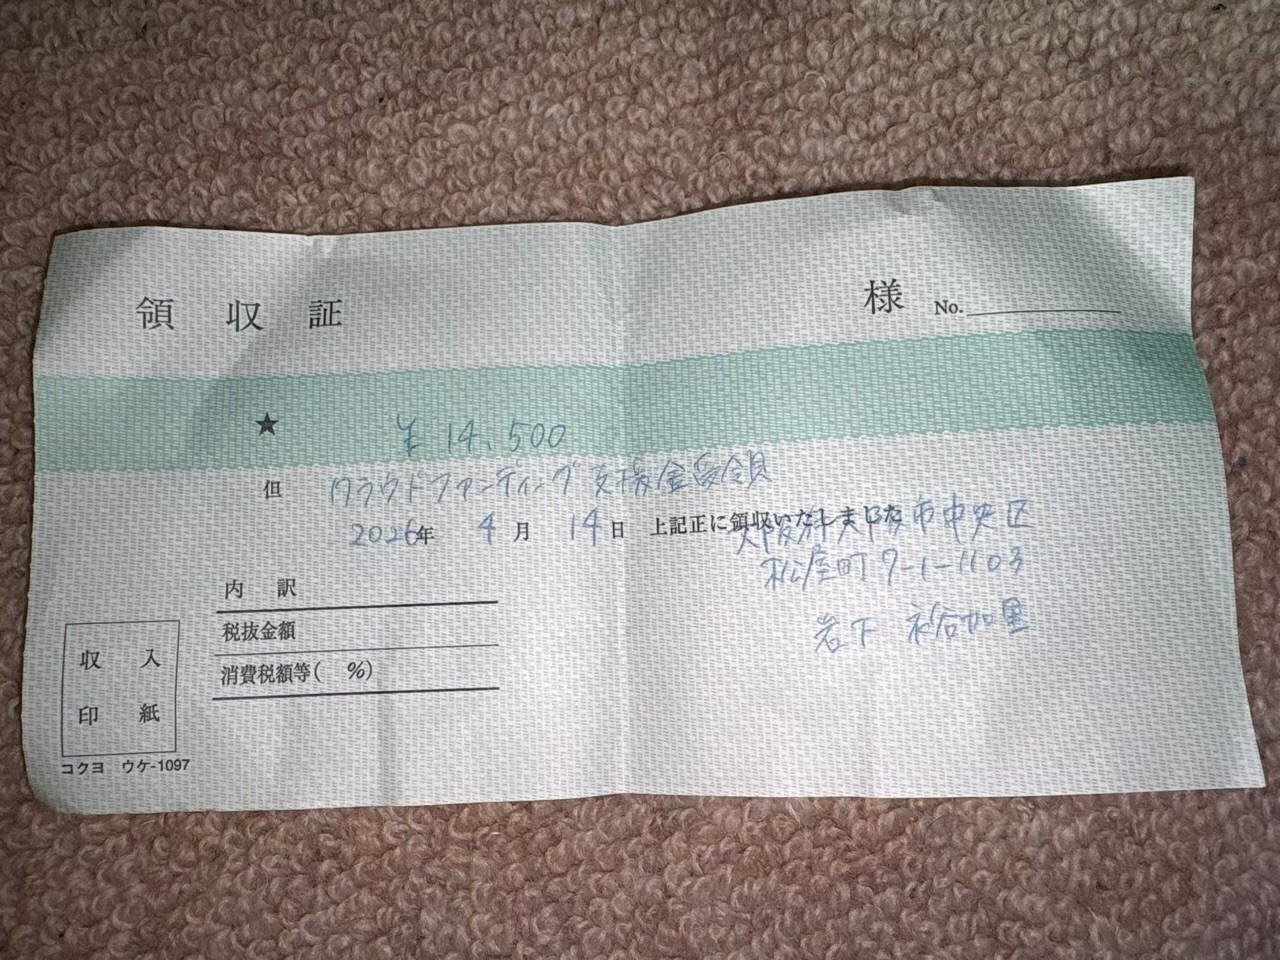 領収証 様 No.
★ ¥14,500
但 クラウドファンディング支援金
2026年 4月 14日 上記正に領収いたしました
大阪府大阪市中央区
松屋町7-1-1103
岩下
内訳
税抜金額
消費税額等( %)
収入
印紙
コクヨ ウケ-1097